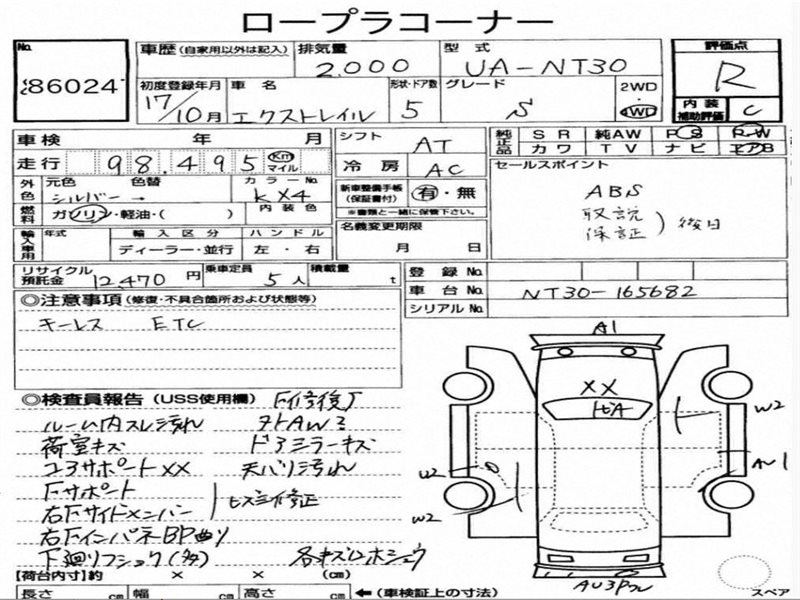 ロープラコーナー
No. 86024
車歴 (自家用以外は記入) 排気量 2,000 型式 UA-NT30 評価点 R
初度登録年月 17/10月 車名 エクストレイル 形状・ドア数 5 グレード S 2WD 4WD 内装補助評価 C
車検 年 月 シフト AT 純正品 SR 純AW PS PW
走行 98,495 Km マイル 冷房 AC カワ TV ナビ エアB
外色 元色 シルバー → 色替 カラーNo. KX4 新車整備手帳(保証書付) 有・無 セールスポイント
燃料 ガソリン・軽油・( ) 内装色 ※書類と一緒に保管下さい。 ABS
輸入車用 年式 輸入区分 ハンドル 名義変更期限 取説
ディーラー・並行 左・右 月 日 保証 ) 後日
リサイクル預託金 12,470円 乗車定員 5人 積載量 t 登録No.
◎注意事項 (修復・不具合箇所および状態等) 車台No. NT30-165682
キーレス ETC シリアルNo.
A1
XX
W2
W2
W2
◎検査員報告 (USS使用欄)
ルーム内スレ汚れ
荷室キズ ドアミラーキズ
コアサポートXX 天バリ汚れ
Fサポート
右Fサイドメンバー
右FインパネBP曲り
【荷台内寸】約 × × (cm)
長さ cm 幅 cm 高さ cm ←(車検証上の寸法)
スペア